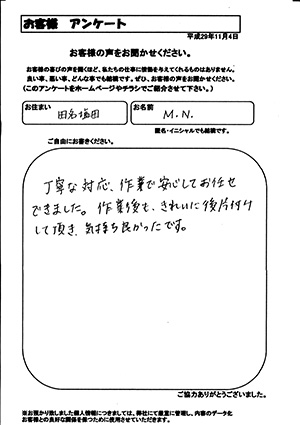 お客様 アンケート
平成29年11月4日
お客様の声をお聞かせください。
お客様の喜びの声を聞くほど、私たちの仕事に情熱を与えてくれるものはありません。
良い事、悪い事、どんな事でも結構です。ぜひ、お客様の声をお聞かせください。
(このアンケートをホームページやチラシでご紹介させて下さい。)
お住まい 田名塩田 お名前 M.N.
匿名・イニシャルでも結構です。
ご自由にお書きください。
丁寧な対応、作業で安心してお任せ
できました。作業後も、きれいに後片付け
して頂き、気持ち良かったです。
ご協力ありがとうございました。
※お預かり致しました個人情報につきましては、弊社にて厳重に管理し、内容のデータ化
お客様との良好な関係を保つために使用させていただきます。